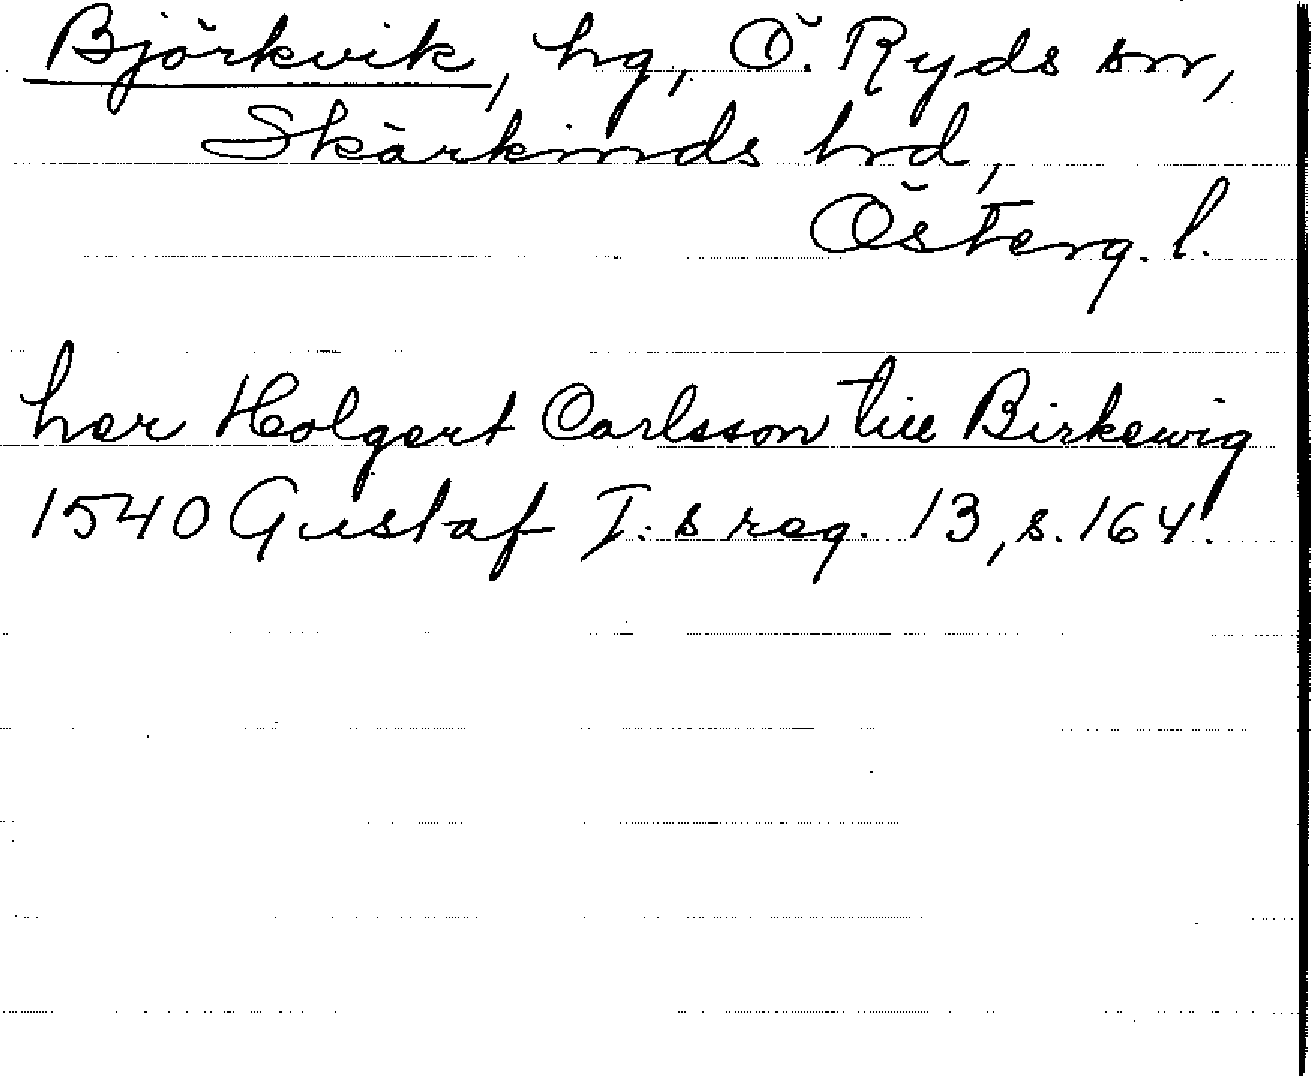 Björkvik, hg, Ö. Ryds sn,
Skärkinds hrd,
Österg. l.
her Holgert Carlsson till Birkewig
1540 Gustaf I:s reg. 13, s. 164.